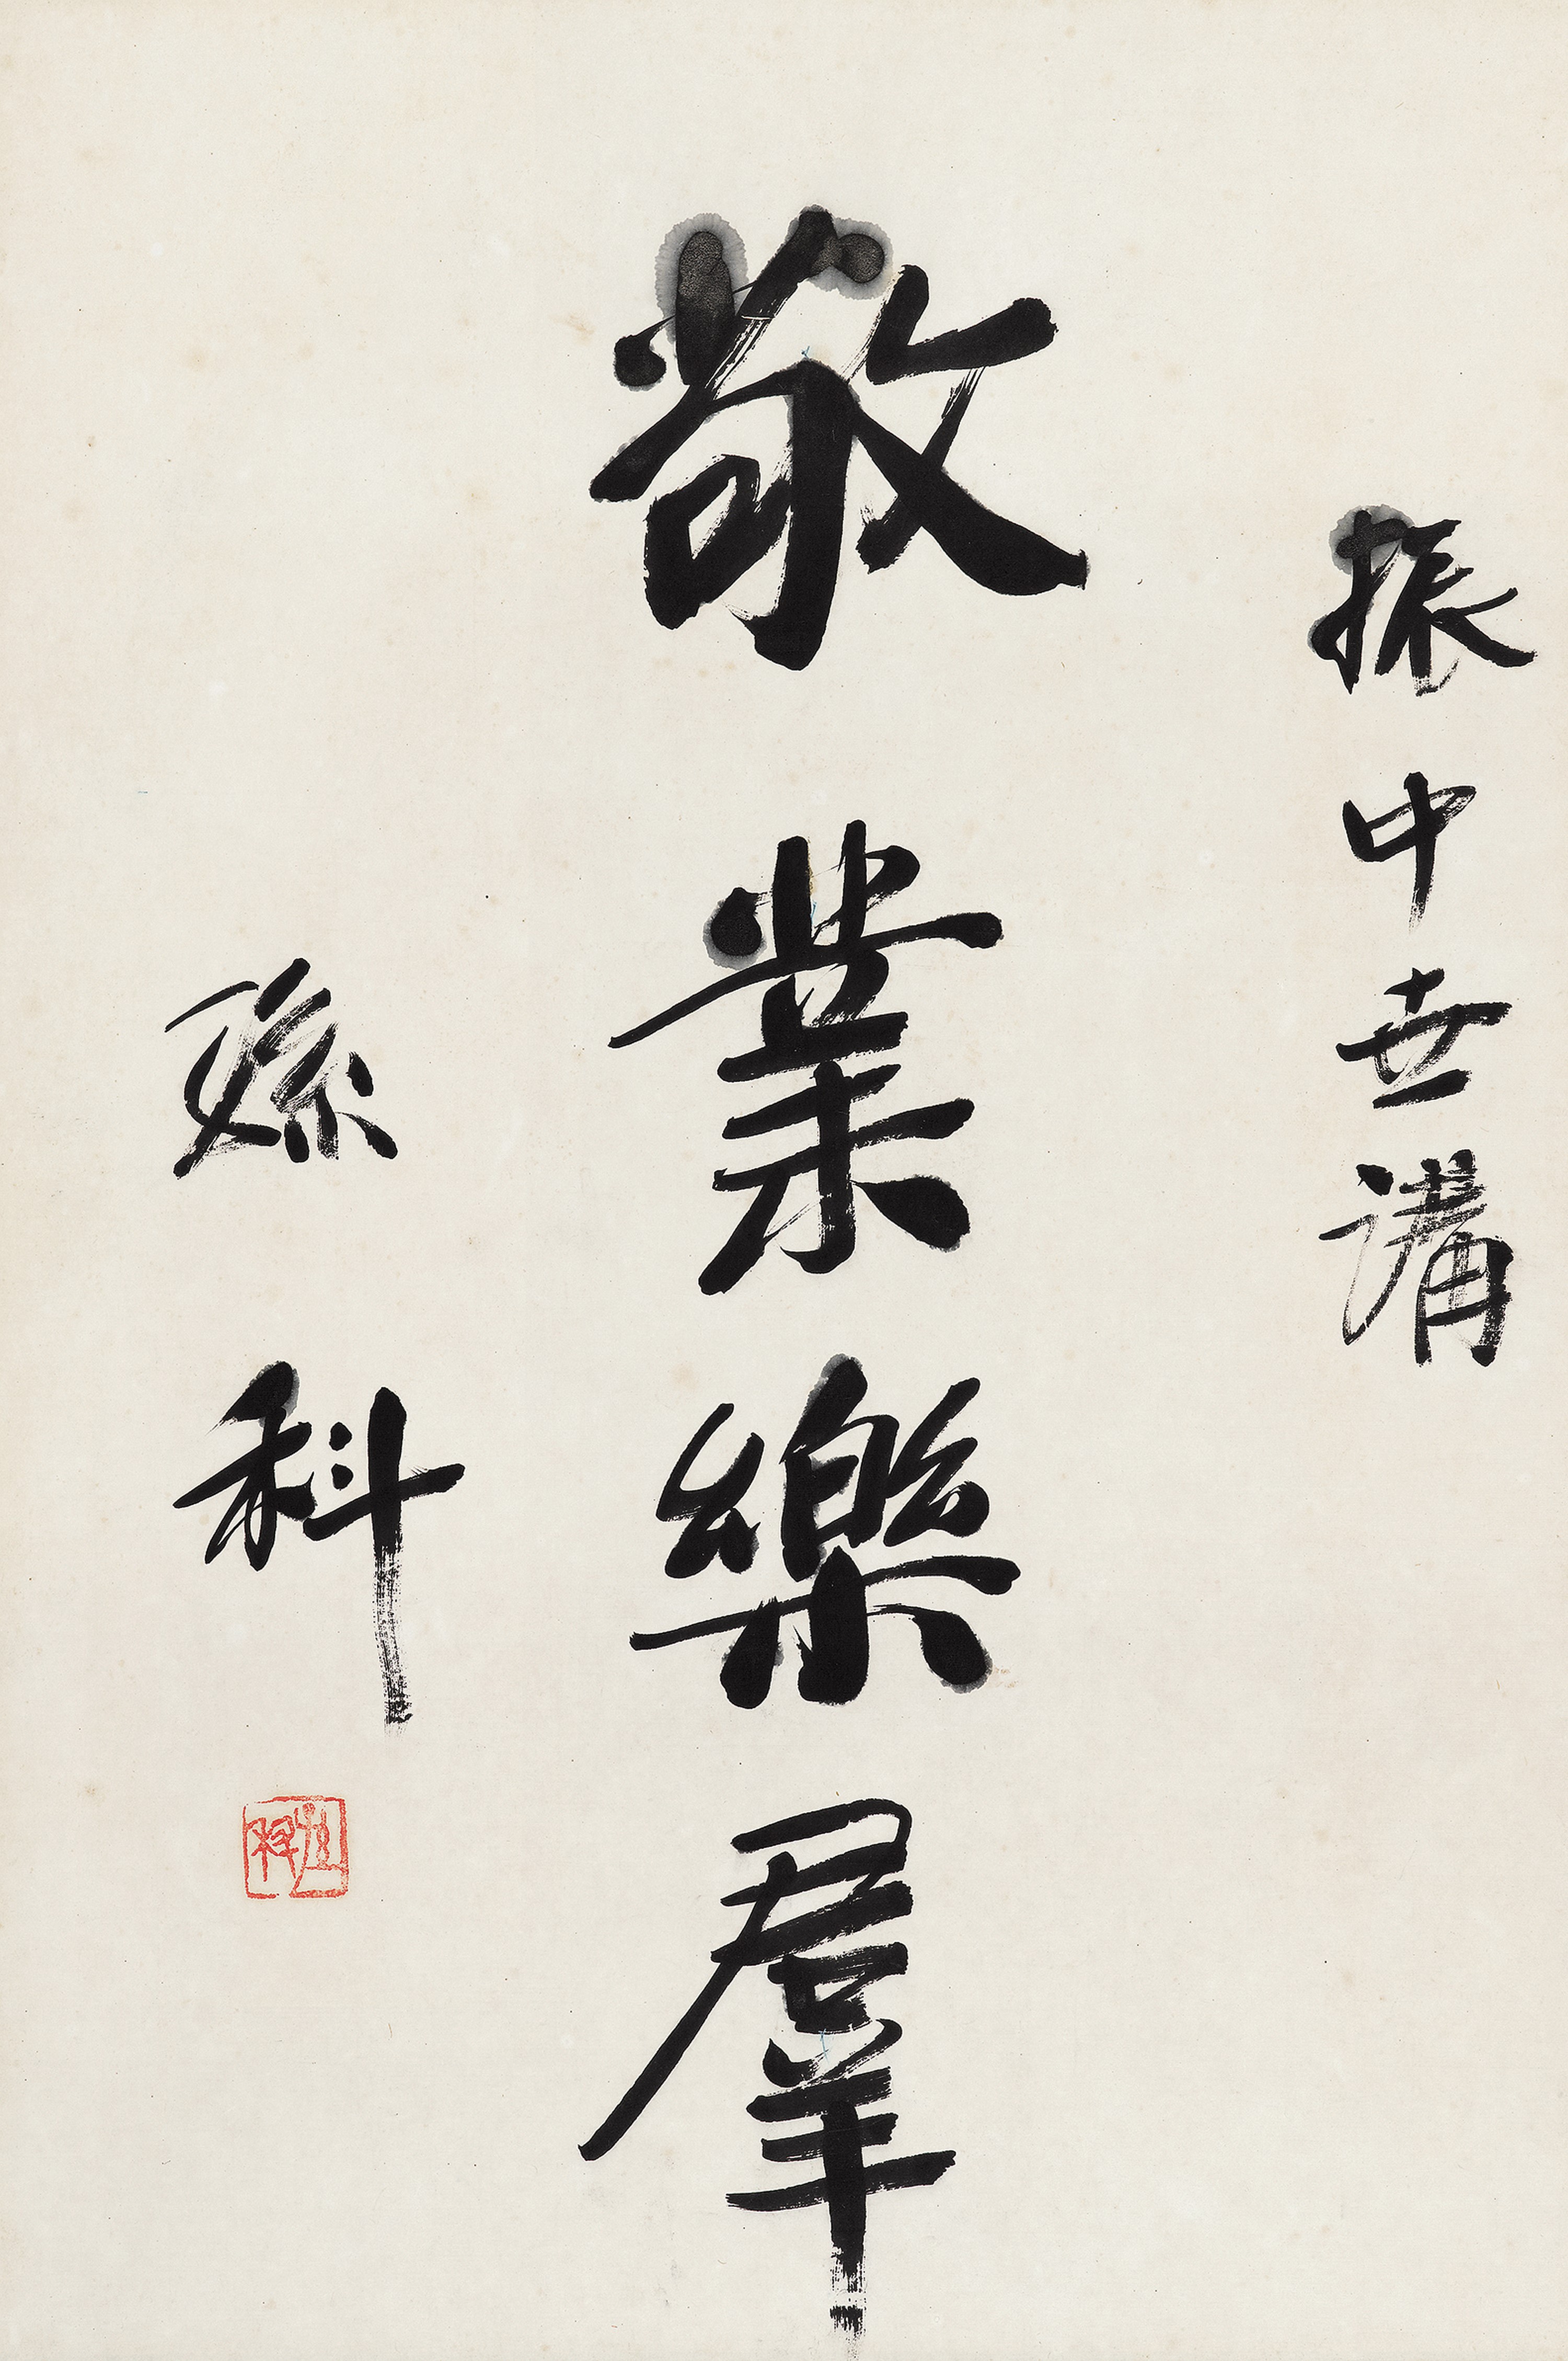 振中世講
敬業樂羣
孫科
孫科